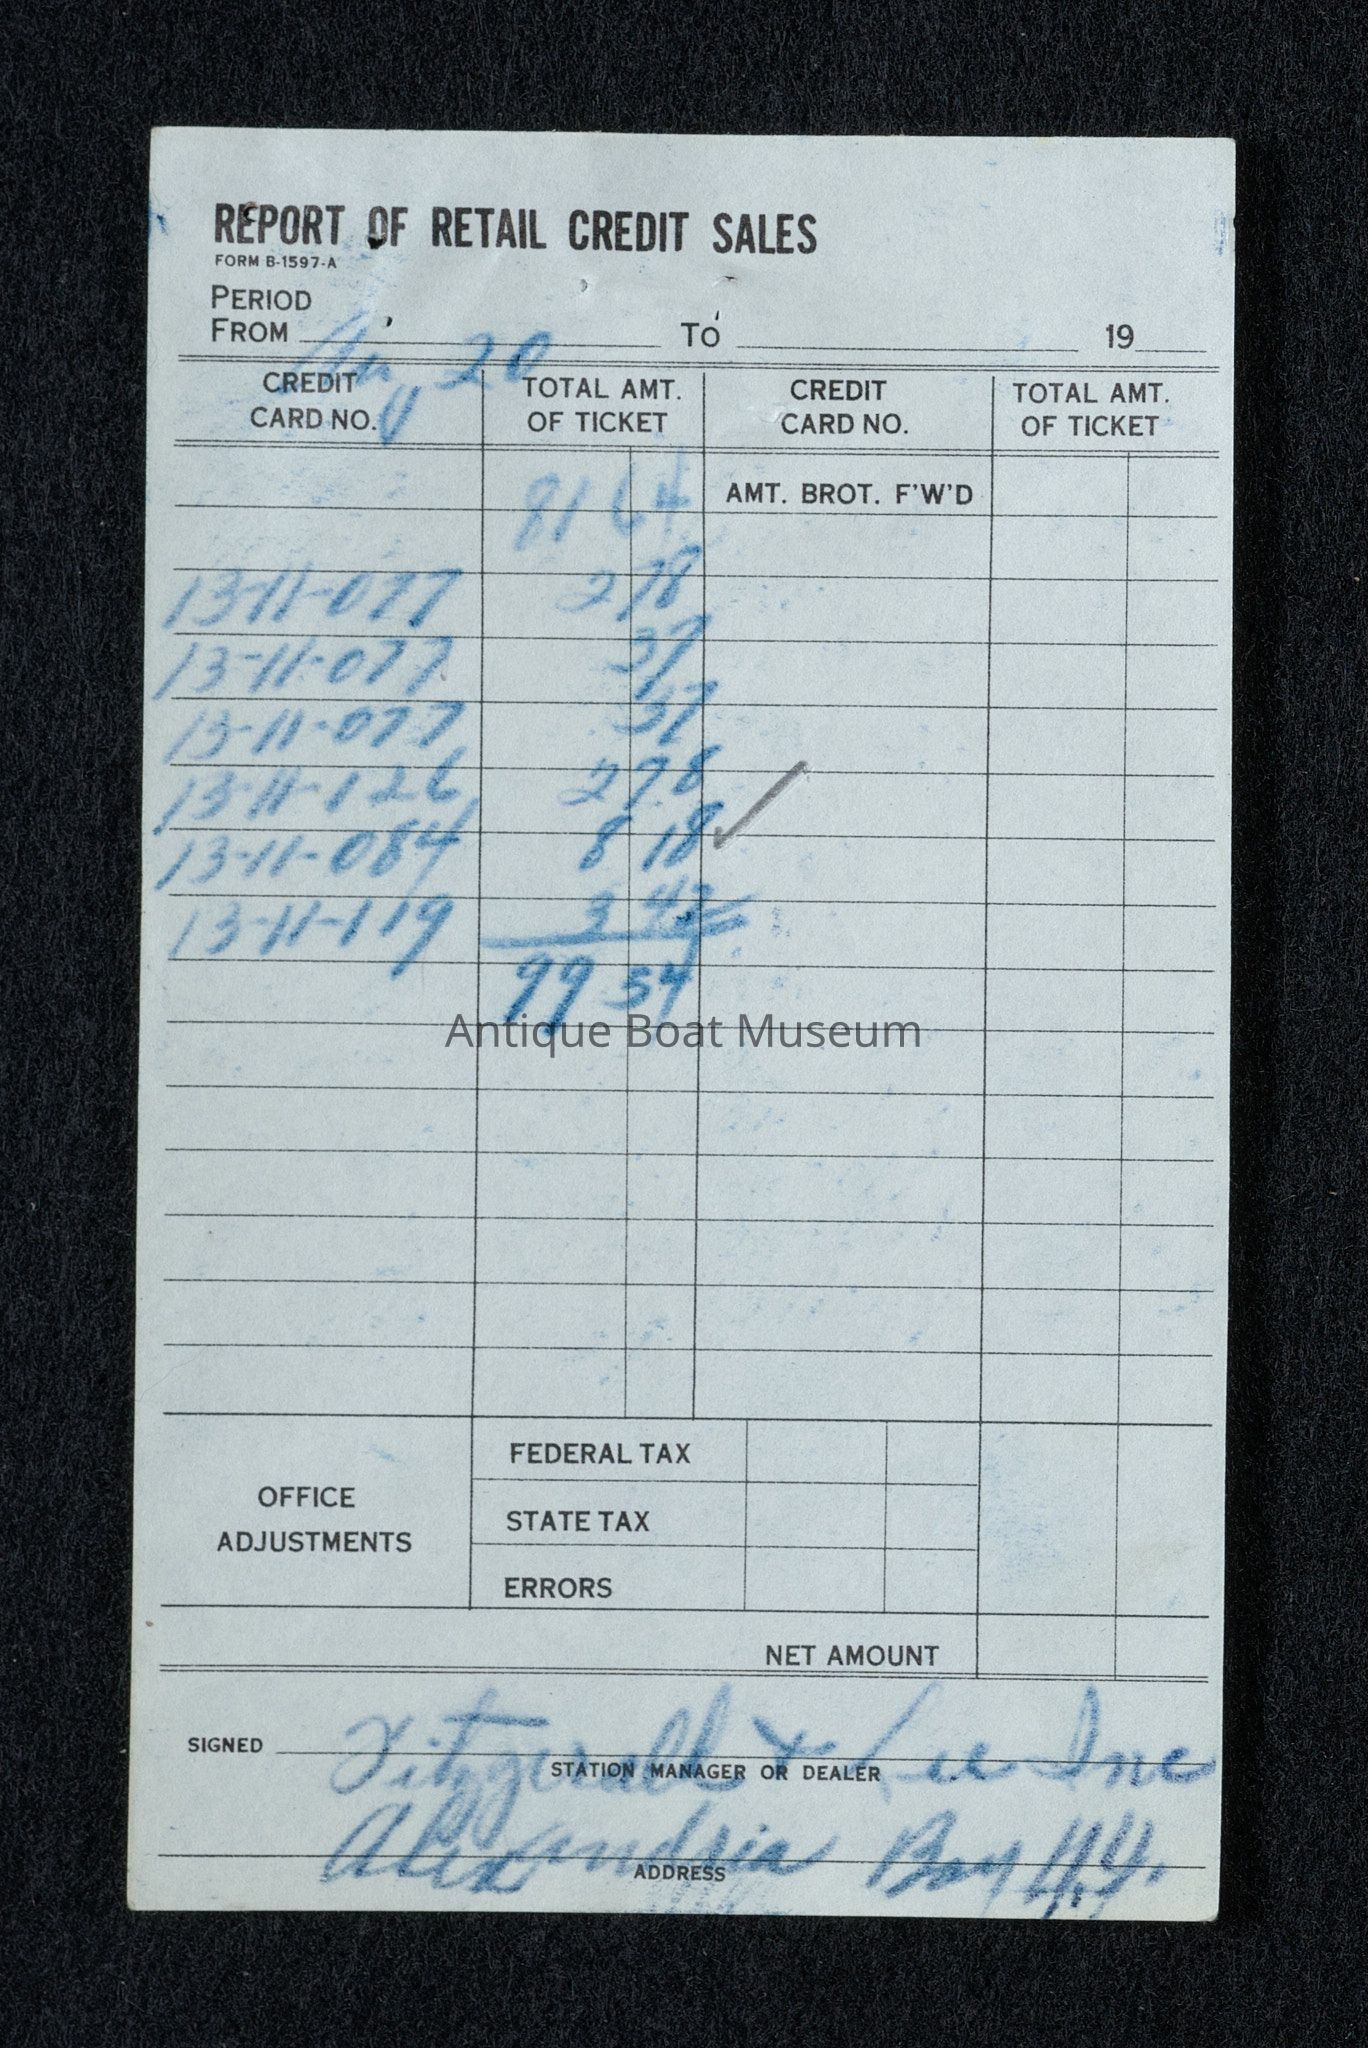 REPORT OF RETAIL CREDIT SALES
FORM B-1597-A
PERIOD
FROM Aug 20 TO 19
CREDIT CARD NO. TOTAL AMT. OF TICKET CREDIT CARD NO. TOTAL AMT. OF TICKET
81 64 AMT. BROT. F'W'D
13-11-077 2 78
13-11-077 37
13-11-077 37
13-11-126 2 78
13-11-084 8 18 ✓
13-11-119 3 42
99 54
Antique Boat Museum
OFFICE ADJUSTMENTS
FEDERAL TAX
STATE TAX
ERRORS
NET AMOUNT
SIGNED Fitzgerald & Lee Inc
STATION MANAGER OR DEALER
Alexandria Bay N.Y.
ADDRESS